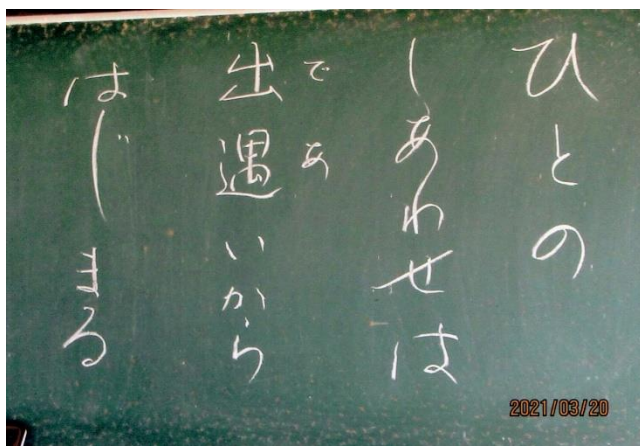 ひとの
しあわせは
出遇いから
であ
はじまる
2021/03/20